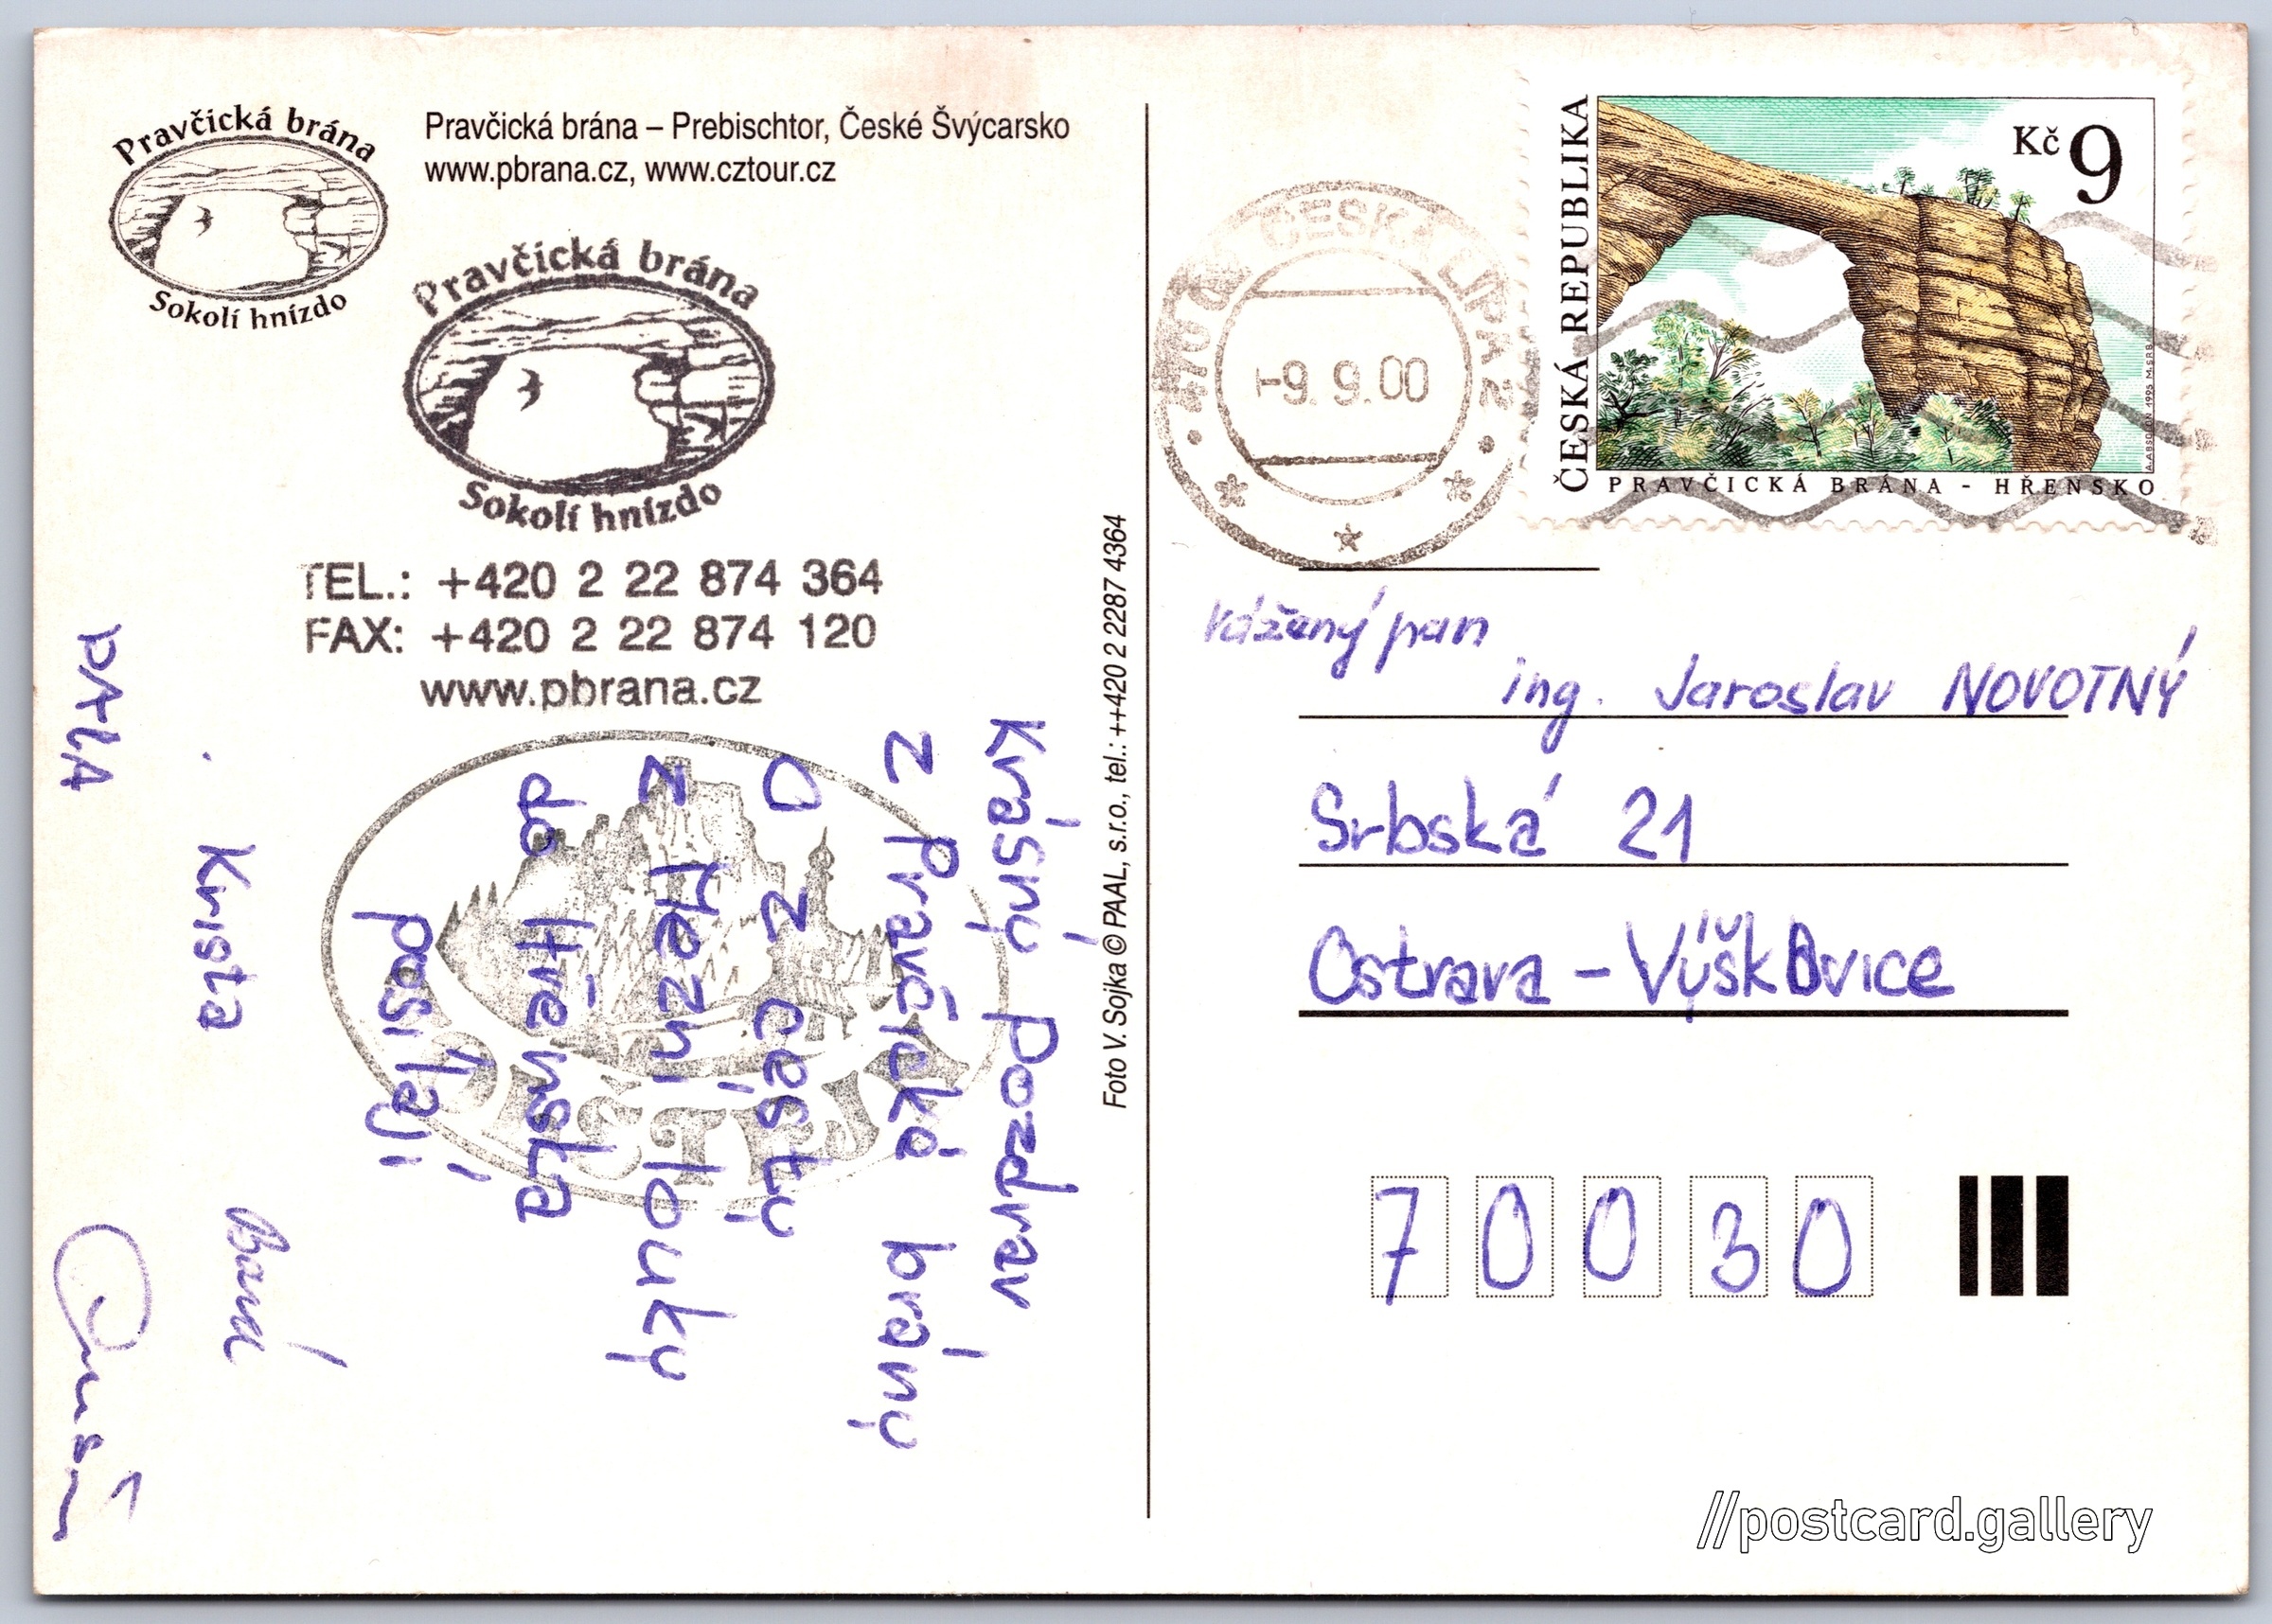 Pravčická brána
Sokolí hnízdo
Pravčická brána – Prebischtor, České Švýcarsko
www.pbrana.cz, www.cztour.cz
Pravčická brána
Sokolí hnízdo
TEL.: +420 2 22 874 364
FAX: +420 2 22 874 120
www.pbrana.cz
Krásný pozdrav
z Pravčické brány
O z cesty
z Mezní louky
do Hřenska
posílají
Krista
Foto V. Sojka © PAAL, s.r.o., tel.: ++420 2 2287 4364
ČESKÁ LÍPA 2
-9. 9.00
ČESKÁ REPUBLIKA
Kč 9
PRAVČICKÁ BRÁNA - HŘENSKO
Vážený pan
ing. Jaroslav NOVOTNÝ
Srbská 21
Ostrava - Výškovice
70030
//postcard.gallery